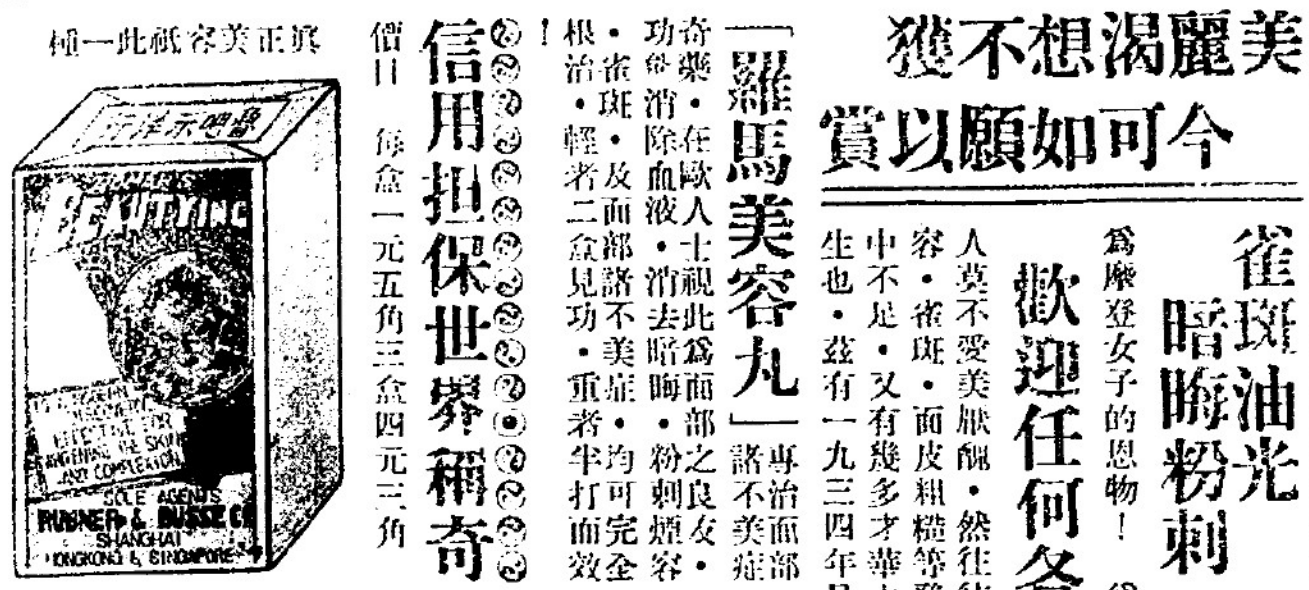 美麗渴想不獲
今可如願以賞
雀斑油光
暗晦粉刺
為摩登女子的恩物！
歡迎任何各
人莫不愛美厭醜・然往往
容・雀斑・面皮粗糙等
中不足・又有幾多才華
生也・茲有一九三四年
「羅馬美容丸」
專治面部
諸不美症
奇藥・在歐人士視此為面部之良友・
功能消除血液・消去暗晦・粉刺煙容
・雀斑・及面部諸不美症・均可完全
根治・輕者二盒見功・重者半打而效
！
信用担保世界稱奇
價目 每盒一元五角三盒四元三角
真正美容祇此一種
魯吧示洋行
BEAUTYING
EFFECTIVE FOR
THE SKIN
AND COMPLEXION
SOLE AGENTS
SHANGHAI
HONGKONG & SINGAPORE